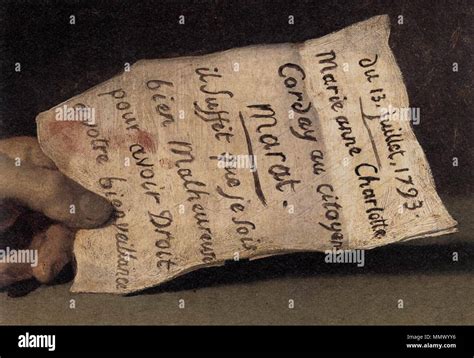 du 13. juillet, 1793.
Marie anne Charlotte
Corday au citoyen
Marat.
il suffit que je sois
bien Malheureuse
pour avoir Droit
a votre bienveillance
alamy stock photo
Image ID: MMWYY6
www.alamy.com